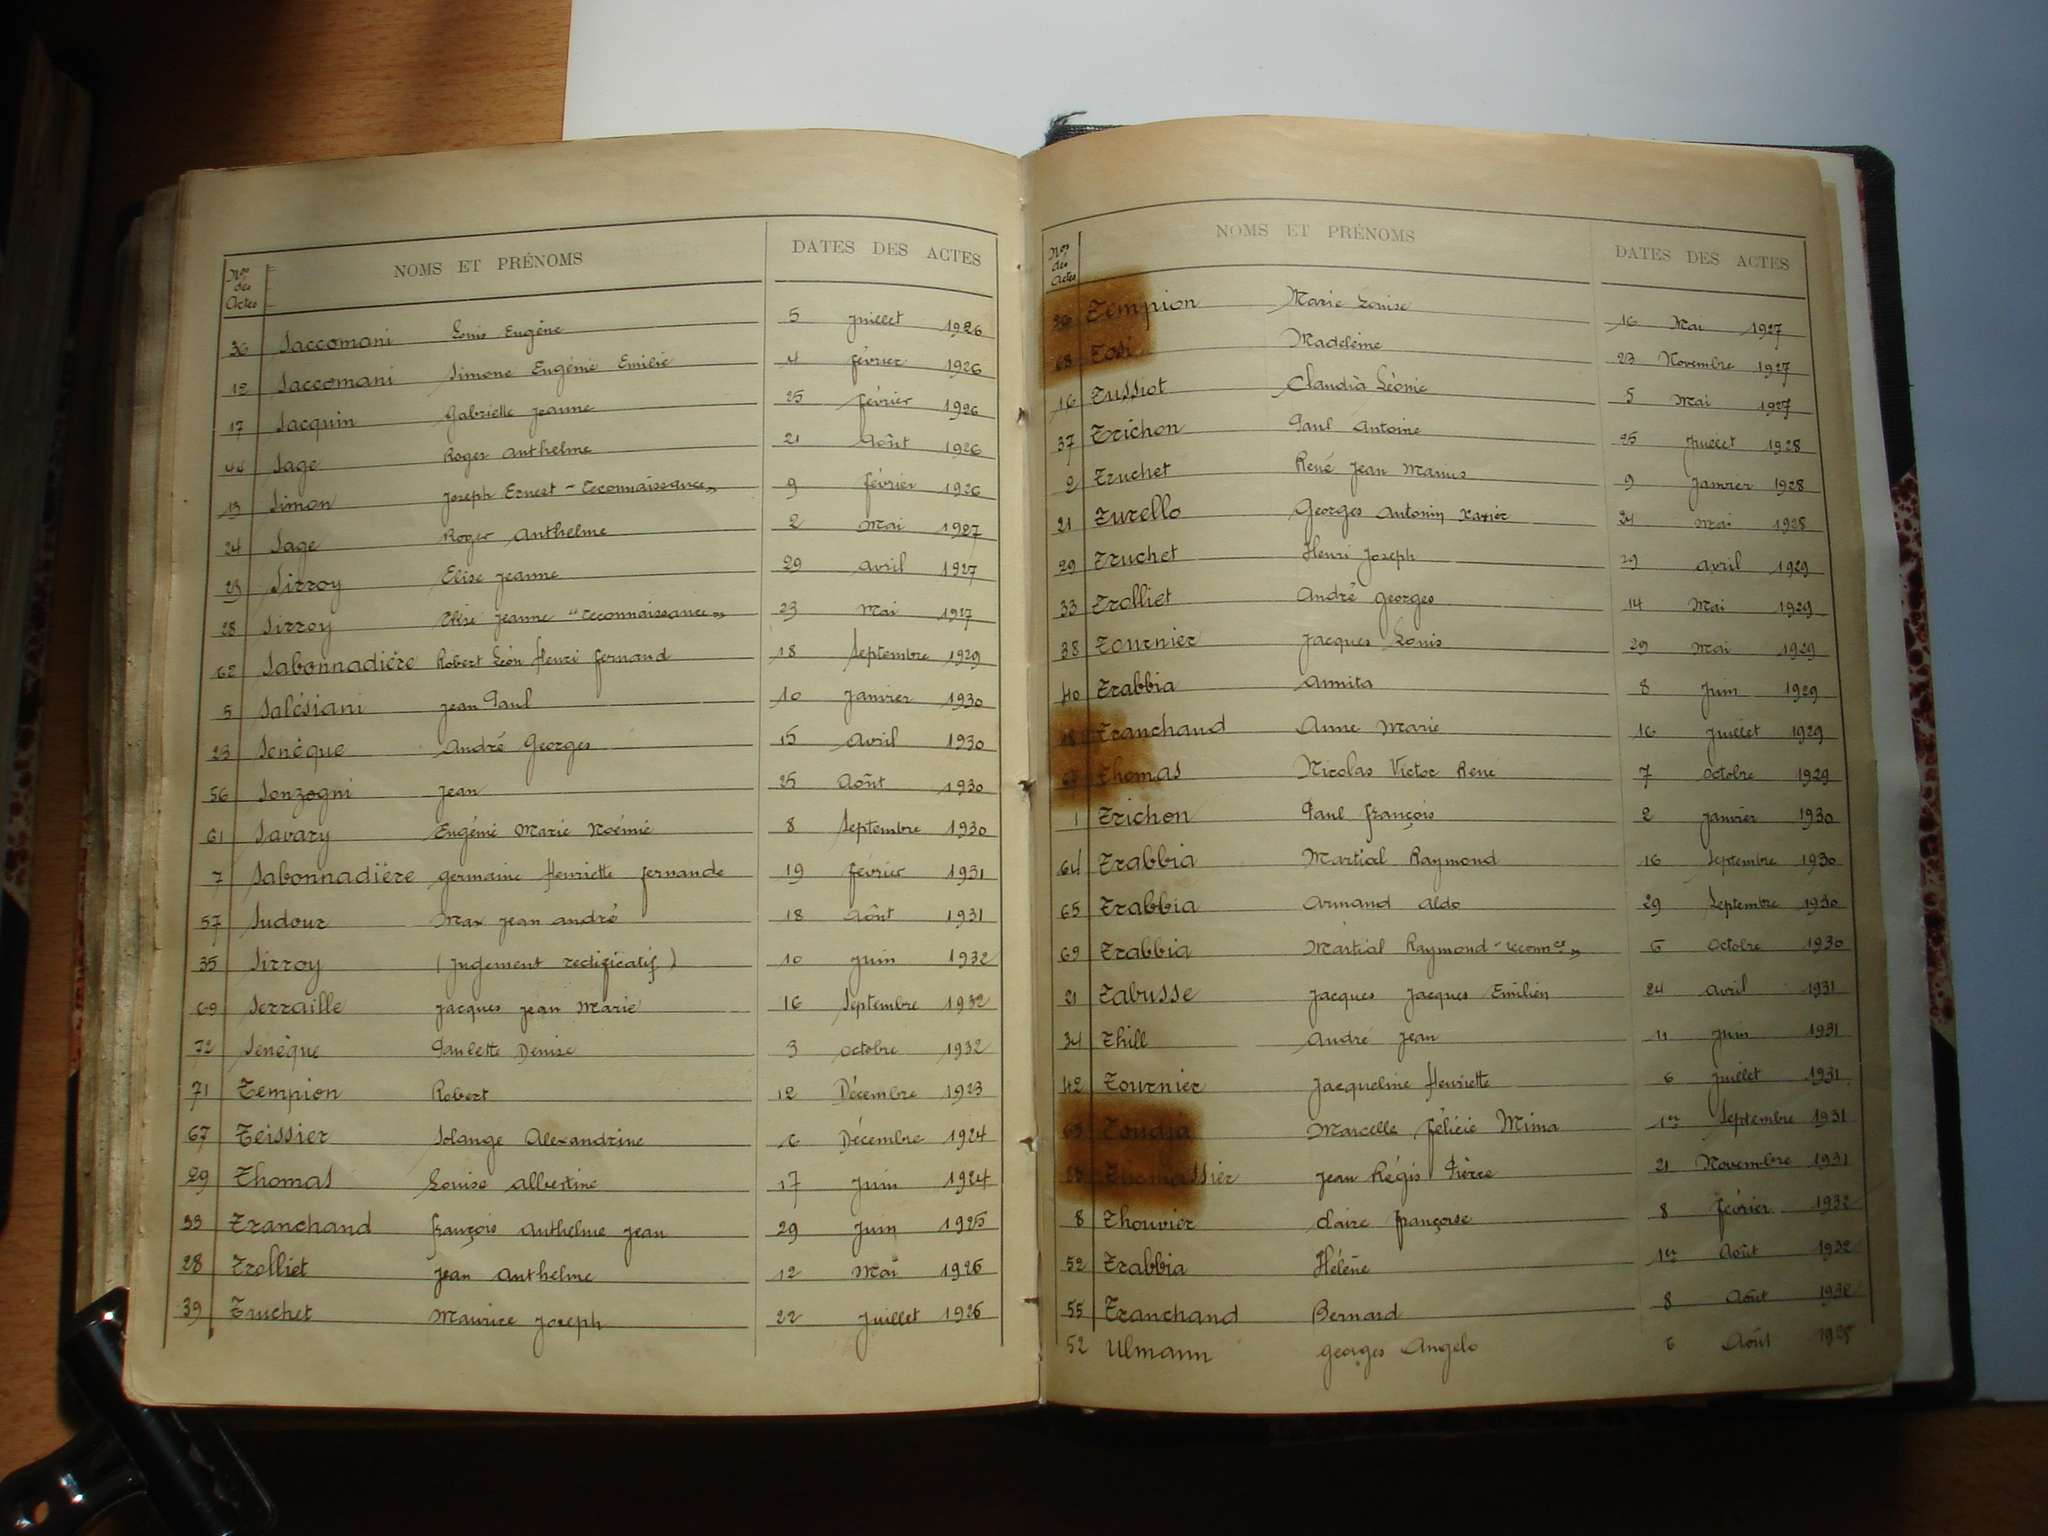 Nos des Actes NOMS ET PRÉNOMS DATES DES ACTES
36 Saccomani Louis Eugène 5 Juillet 1926
12 Saccomani Simone Eugénie Emilie 4 février 1926
17 Sacquin Gabrielle Jeanne 25 février 1926
44 Sage Roger Anthelme 21 Août 1926
13 Simon Joseph Ernest - reconnaissance" 9 février 1926
24 Sage Roger Anthelme 2 Mai 1927
23 Sirroy Elise Jeanne 29 avril 1927
28 Sirroy Elise Jeanne "reconnaissance" 23 Mai 1927
62 Sabonnadière Robert Léon Henri fernand 18 Septembre 1929
5 Salésiani Jean Paul 10 Janvier 1930
23 Senèque André Georges 15 Avril 1930
56 Sonzogni Jean 25 Août 1930
61 Savary Eugénie Marie Noémie 8 Septembre 1930
7 Sabonnadière germaine Henriette fernande 19 février 1931
57 Sudour Max Jean andré 18 Août 1931
35 Sirroy (Jugement rectificatif) 10 Juin 1932
69 Serraille Jacques Jean Marie 16 Septembre 1932
72 Senèque Paulette Denise 3 octobre 1932
71 Tempion Robert 12 Décembre 1923
67 Teissier Solange Alexandrine 6 Décembre 1924
29 Thomas Louise Albertine 17 Juin 1924
33 Tranchand françois Anthelme Jean 29 Juin 1925
28 Trolliet Jean Anthelme 12 Mai 1926
39 Truchet Maurice Joseph 22 Juillet 1926
Nos des Actes NOMS ET PRÉNOMS DATES DES ACTES
26 Tempion Marie Louise 16 Mai 1927
68 Tosi Madeleine 23 Novembre 1927
16 Tussiot Claudia Léonie 5 Mai 1927
37 Trichon Paul Antoine 25 Juillet 1928
2 Truchet René Jean Marius 9 Janvier 1928
21 Turello Georges Antonin Xavier 24 Mai 1928
29 Truchet Henri Joseph 29 avril 1929
33 Trolliet André Georges 14 Mai 1929
38 Tournier Jacques Louis 29 Mai 1929
40 Trabbia Annita 8 Juin 1929
Tranchand Anne Marie 16 Juillet 1929
Thomas Nicolas Victor René 7 octobre 1929
1 Trichon Paul françois 2 Janvier 1930
64 Trabbia Martial Raymond 16 Septembre 1930
65 Trabbia Armand Aldo 29 Septembre 1930
69 Trabbia Martial Raymond "reconnce" 6 octobre 1930
21 Tabusse Jacques Jacques Emilien 24 avril 1931
34 Thill André Jean 11 Juin 1931
42 Tournier Jacqueline Henriette 6 Juillet 1931
Toudja Marcelle félicie Mima 1er Septembre 1931
Thomassier Jean Régis Pierre 21 Novembre 1931
8 Thouvier claire françoise 8 février 1932
52 Trabbia Hélène 1er Août 1932
55 Tranchand Bernard 8 Août 1932
52 Ulmann georges Angelo 6 Août 1925